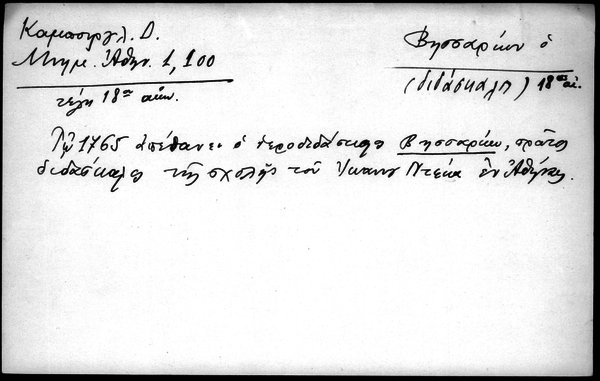 Καμπουρογλ. Δ.
Μνημ. Ἀθην. 1, 100
τέλη 18ου αἰῶν.
Βησσαρίων ὁ
(διδάσκαλος) 18ου αἰ.
Τῷ 1765 ἀπέθανεν ὁ ἱεροδιδάσκαλος Βησσαρίων, πρῶτος
διδάσκαλος τῆς σχολῆς τοῦ Ἰωάννου Ντέκα ἐν Ἀθήναις.